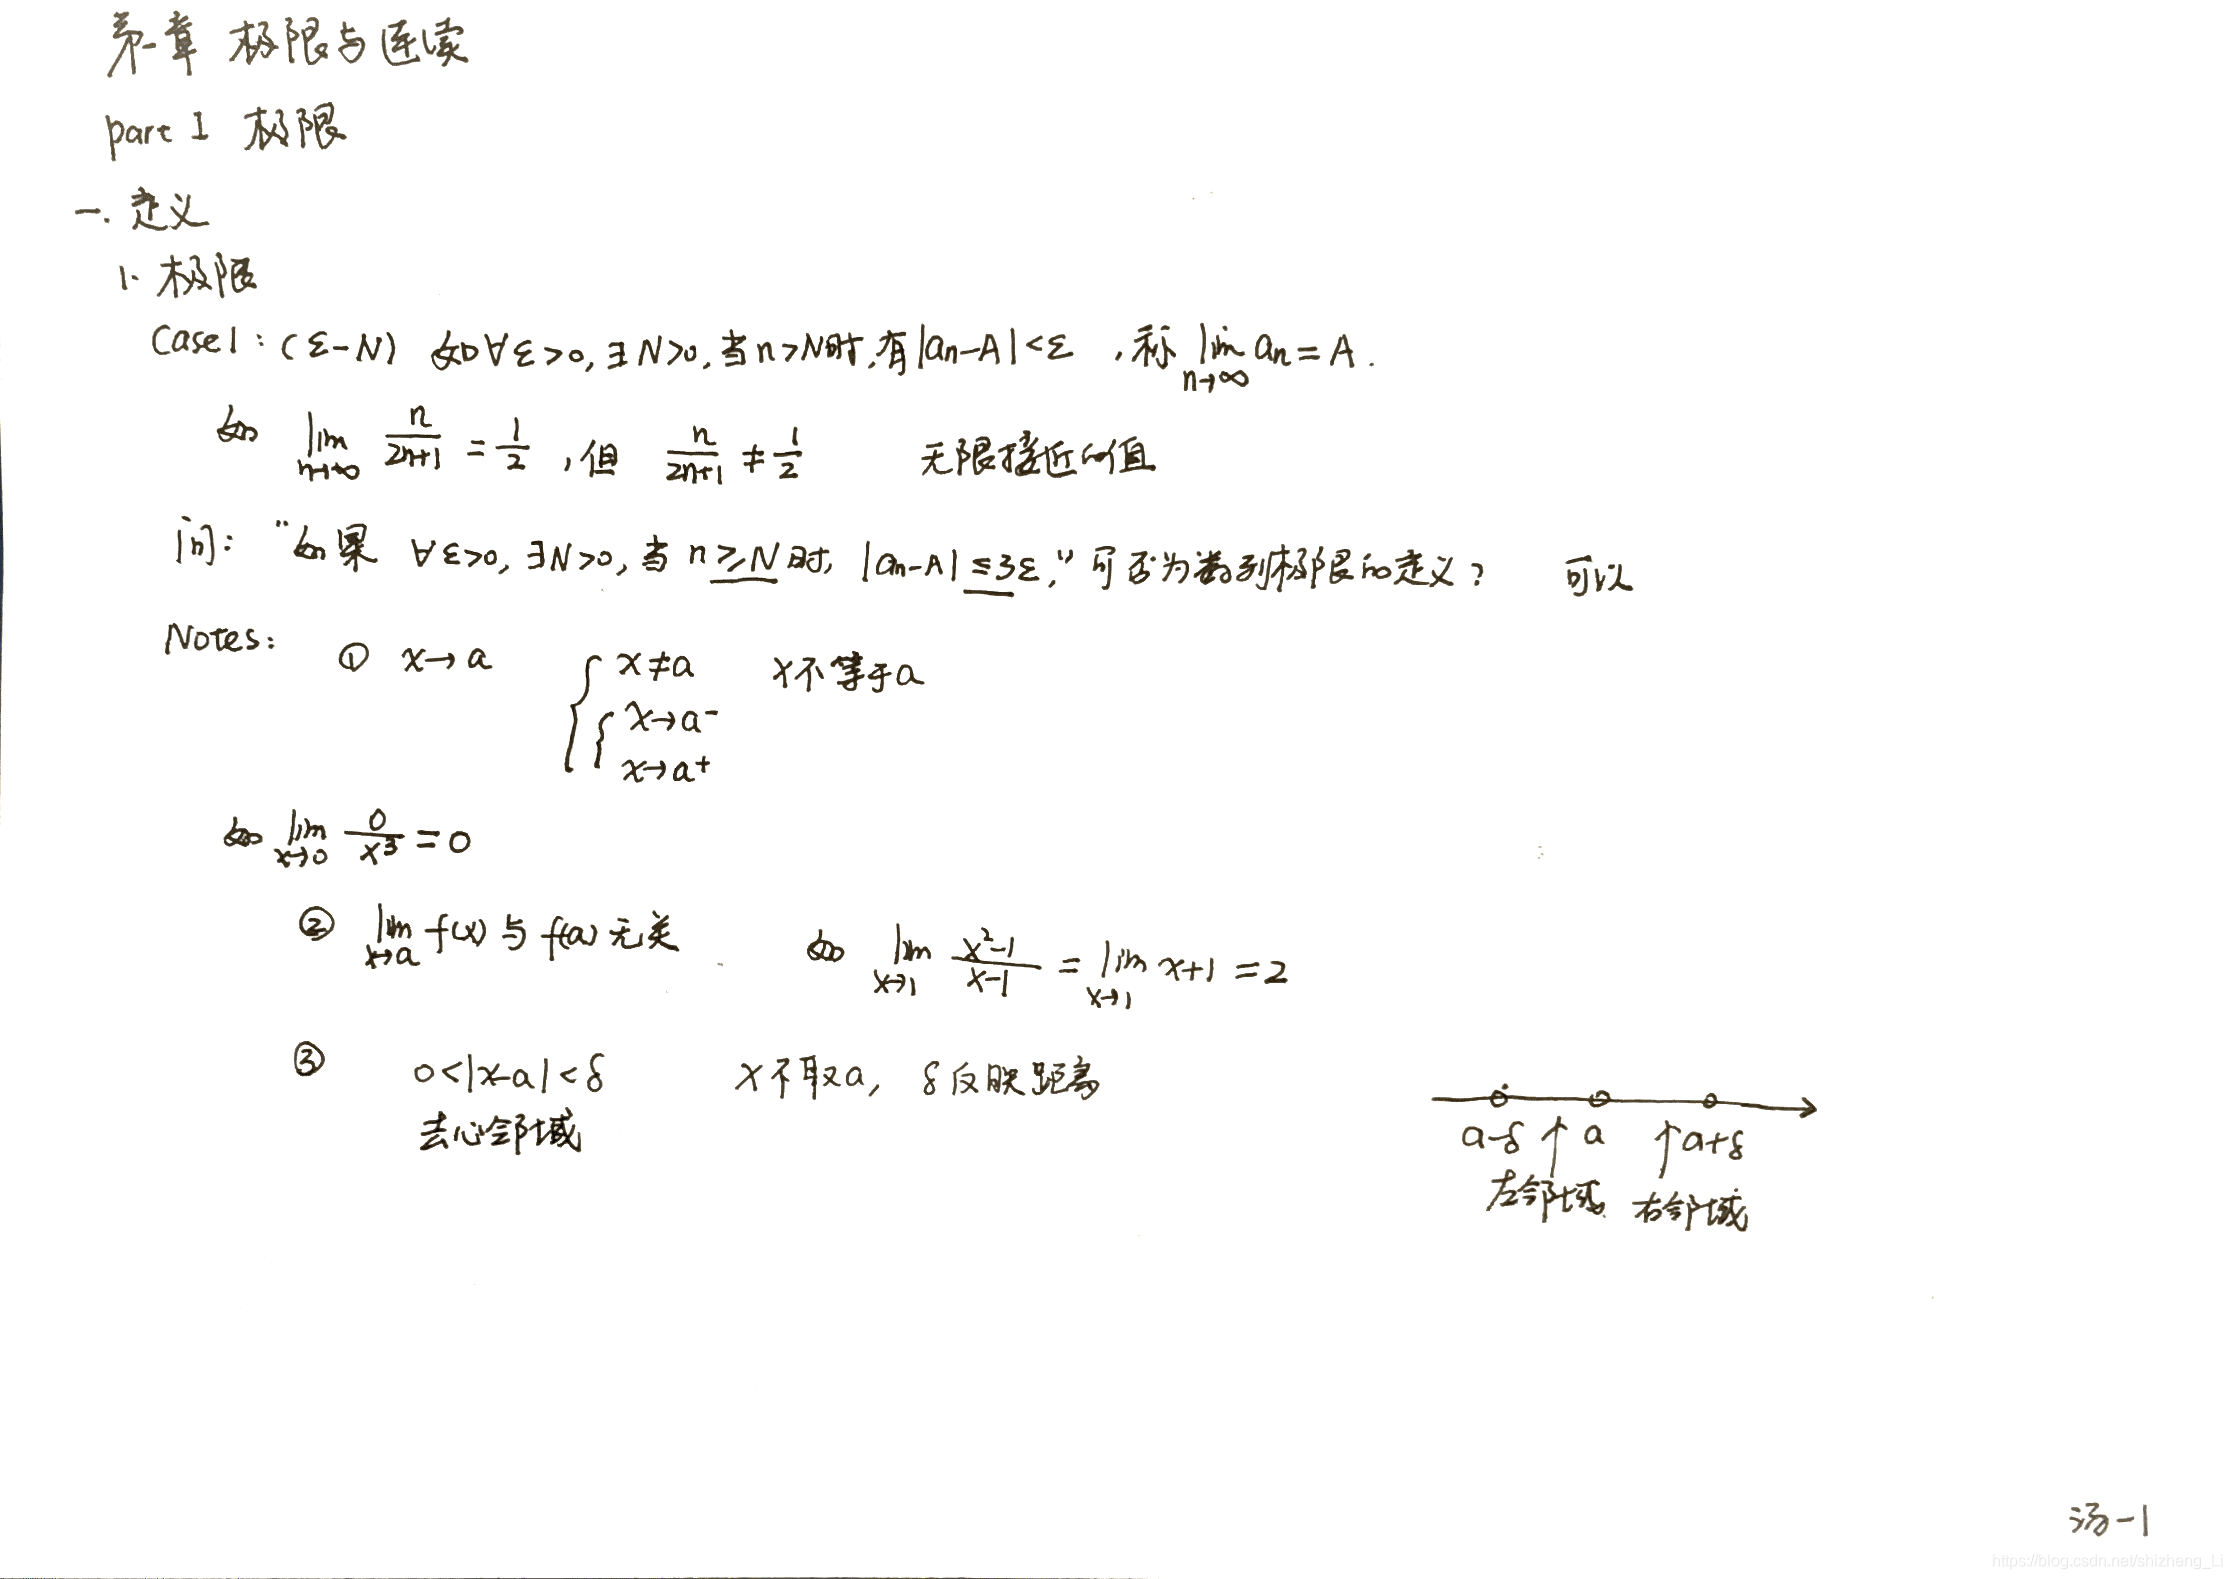 第一章 极限与连续
part 1 极限
一. 定义
1. 极限
Case1: (ε-N) 如∀ε>0, ∃N>0, 当n>N时,有|an-A|<ε ,称 lim n→∞ an=A.
如 lim n→∞ n/(2n+1) = 1/2 ,但 n/(2n+1) ≠ 1/2 无限接近的值
问: "如果 ∀ε>0, ∃N>0, 当 n≥N时, |an-A|≤3ε," 可否为数列极限的定义? 可以
Notes: ① x→a { x≠a x不等于a
{ x→a⁻
x→a⁺
如 lim x→0 0/x³ = 0
② lim x→a f(x) 与 f(a) 无关 如 lim x→1 (x²-1)/(x-1) = lim x→1 x+1 = 2
③ 0<|x-a|<δ x不取a, δ反映距离
去心邻域
a-δ ↑ a ↑ a+δ
左邻域 右邻域
汤-1
https://blog.csdn.net/shizheng_Li